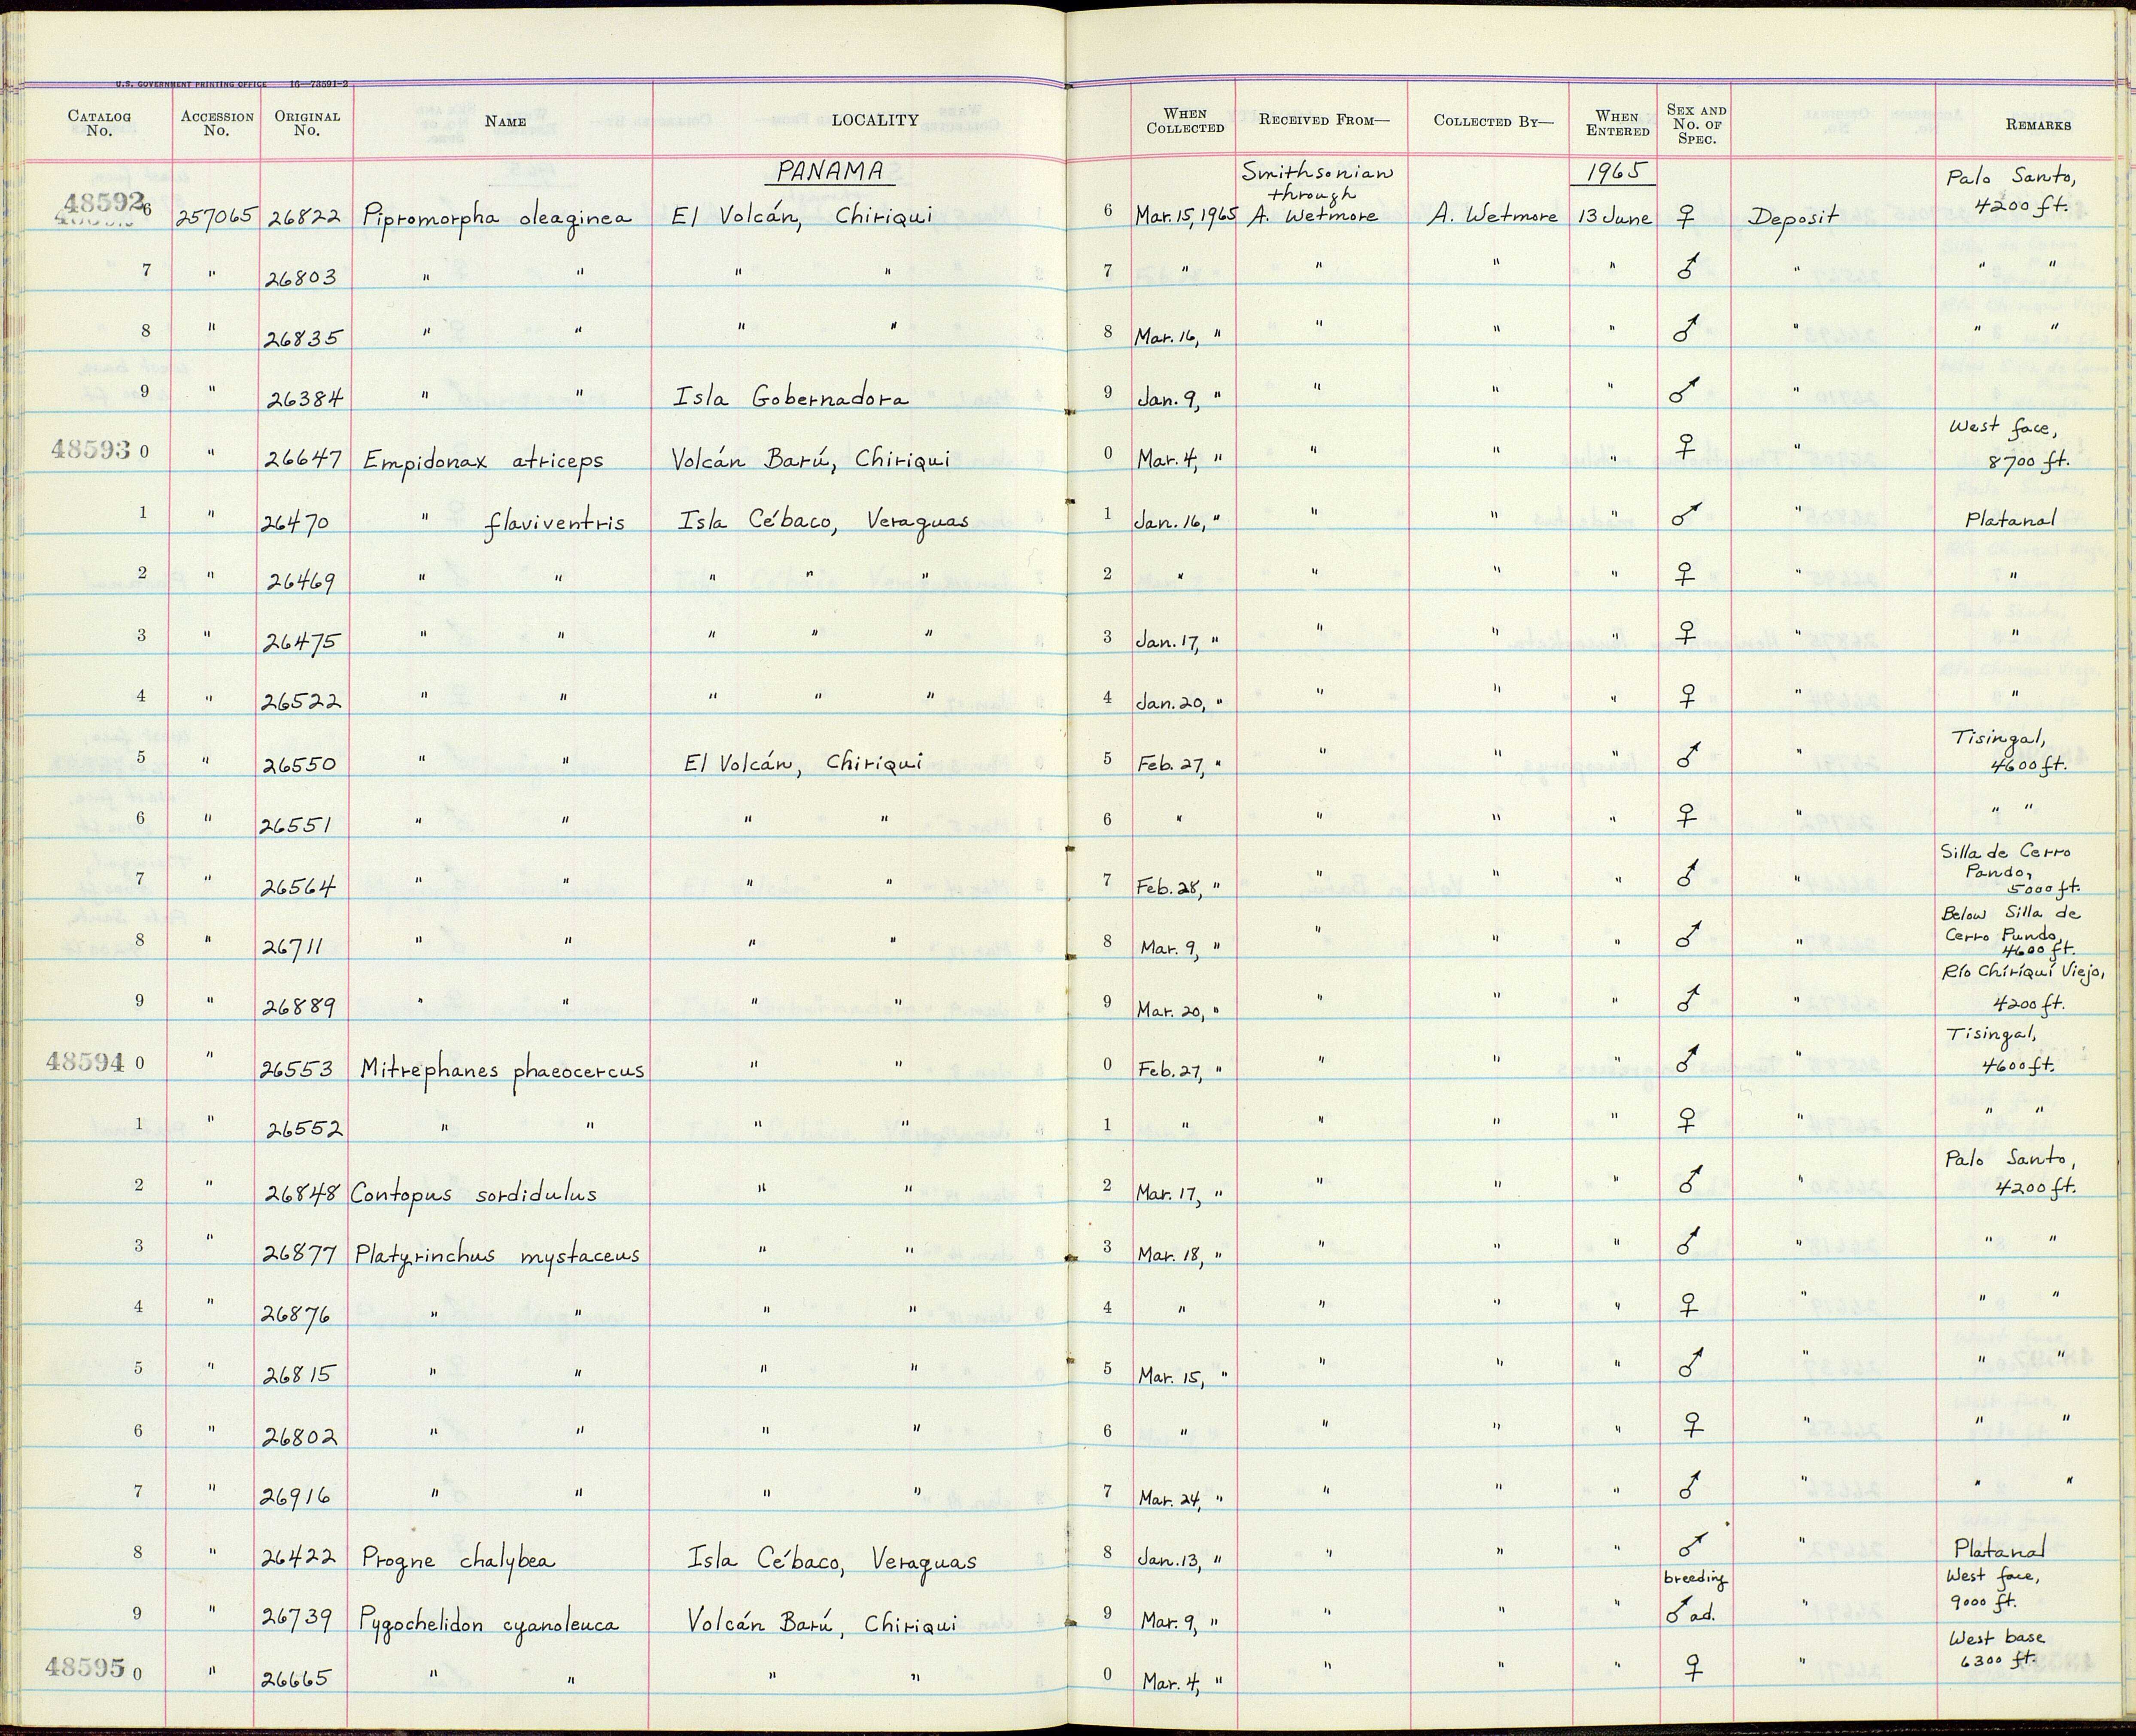 U.S. GOVERNMENT PRINTING OFFICE 16—73591-2
CATALOG No. ACCESSION No. ORIGINAL No. NAME LOCALITY WHEN COLLECTED RECEIVED FROM— COLLECTED BY— WHEN ENTERED SEX AND No. OF SPEC. REMARKS
PANAMA Smithsonian through 1965 Palo Santo,
48592 6 257065 26822 Pipromorpha oleaginea El Volcán, Chiriqui 6 Mar. 15, 1965 A. Wetmore A. Wetmore 13 June ♀ Deposit 4200 ft.
7 " 26803 " " " " 7 " " " " ♂ " " "
8 " 26835 " " " " 8 Mar. 16, " " " " ♂ " " "
9 " 26384 " " Isla Gobernadora 9 Jan. 9, " " " " ♂ "
48593 0 " 26647 Empidonax atriceps Volcán Barú, Chiriqui 0 Mar. 4, " " " " ♀ " West face, 8700 ft.
1 " 26470 " flaviventris Isla Cébaco, Veraguas 1 Jan. 16, " " " " ♂ " Platanal
2 " 26469 " " " " " 2 " " " " ♀ " "
3 " 26475 " " " " " 3 Jan. 17, " " " " ♀ " "
4 " 26522 " " " " " 4 Jan. 20, " " " " ♀ " "
5 " 26550 " " El Volcán, Chiriqui 5 Feb. 27, " " " " ♂ " Tisingal, 4600 ft.
6 " 26551 " " " " 6 " " " " ♀ " " "
7 " 26564 " " " " 7 Feb. 28, " " " " ♂ " Silla de Cerro Pando, 5000 ft.
8 " 26711 " " " " 8 Mar. 9, " " " " ♂ " Below Silla de Cerro Pundo, 4600 ft.
9 " 26889 " " " " 9 Mar. 20, " " " " ♂ " Río Chiriquí Viejo, 4200 ft.
48594 0 " 26553 Mitrephanes phaeocercus " " 0 Feb. 27, " " " " ♂ " Tisingal, 4600 ft.
1 " 26552 " " " " 1 " " " " ♀ " " "
2 " 26848 Contopus sordidulus " " 2 Mar. 17, " " " " ♂ " Palo Santo, 4200 ft.
3 " 26877 Platyrinchus mystaceus " " 3 Mar. 18, " " " " ♂ " " "
4 " 26876 " " " " 4 " " " " ♀ " " "
5 " 26815 " " " " 5 Mar. 15, " " " " ♂ " " "
6 " 26802 " " " " 6 " " " " ♀ " " "
7 " 26916 " " " " 7 Mar. 24, " " " " ♂ " " "
8 " 26422 Progne chalybea Isla Cébaco, Veraguas 8 Jan. 13, " " " " ♂ breeding " Platanal
9 " 26739 Pygochelidon cyanoleuca Volcán Barú, Chiriqui 9 Mar. 9, " " " " ♂ ad. " West face, 9000 ft.
48595 0 " 26665 " " " " 0 Mar. 4, " " " " ♀ " West base 6300 ft.